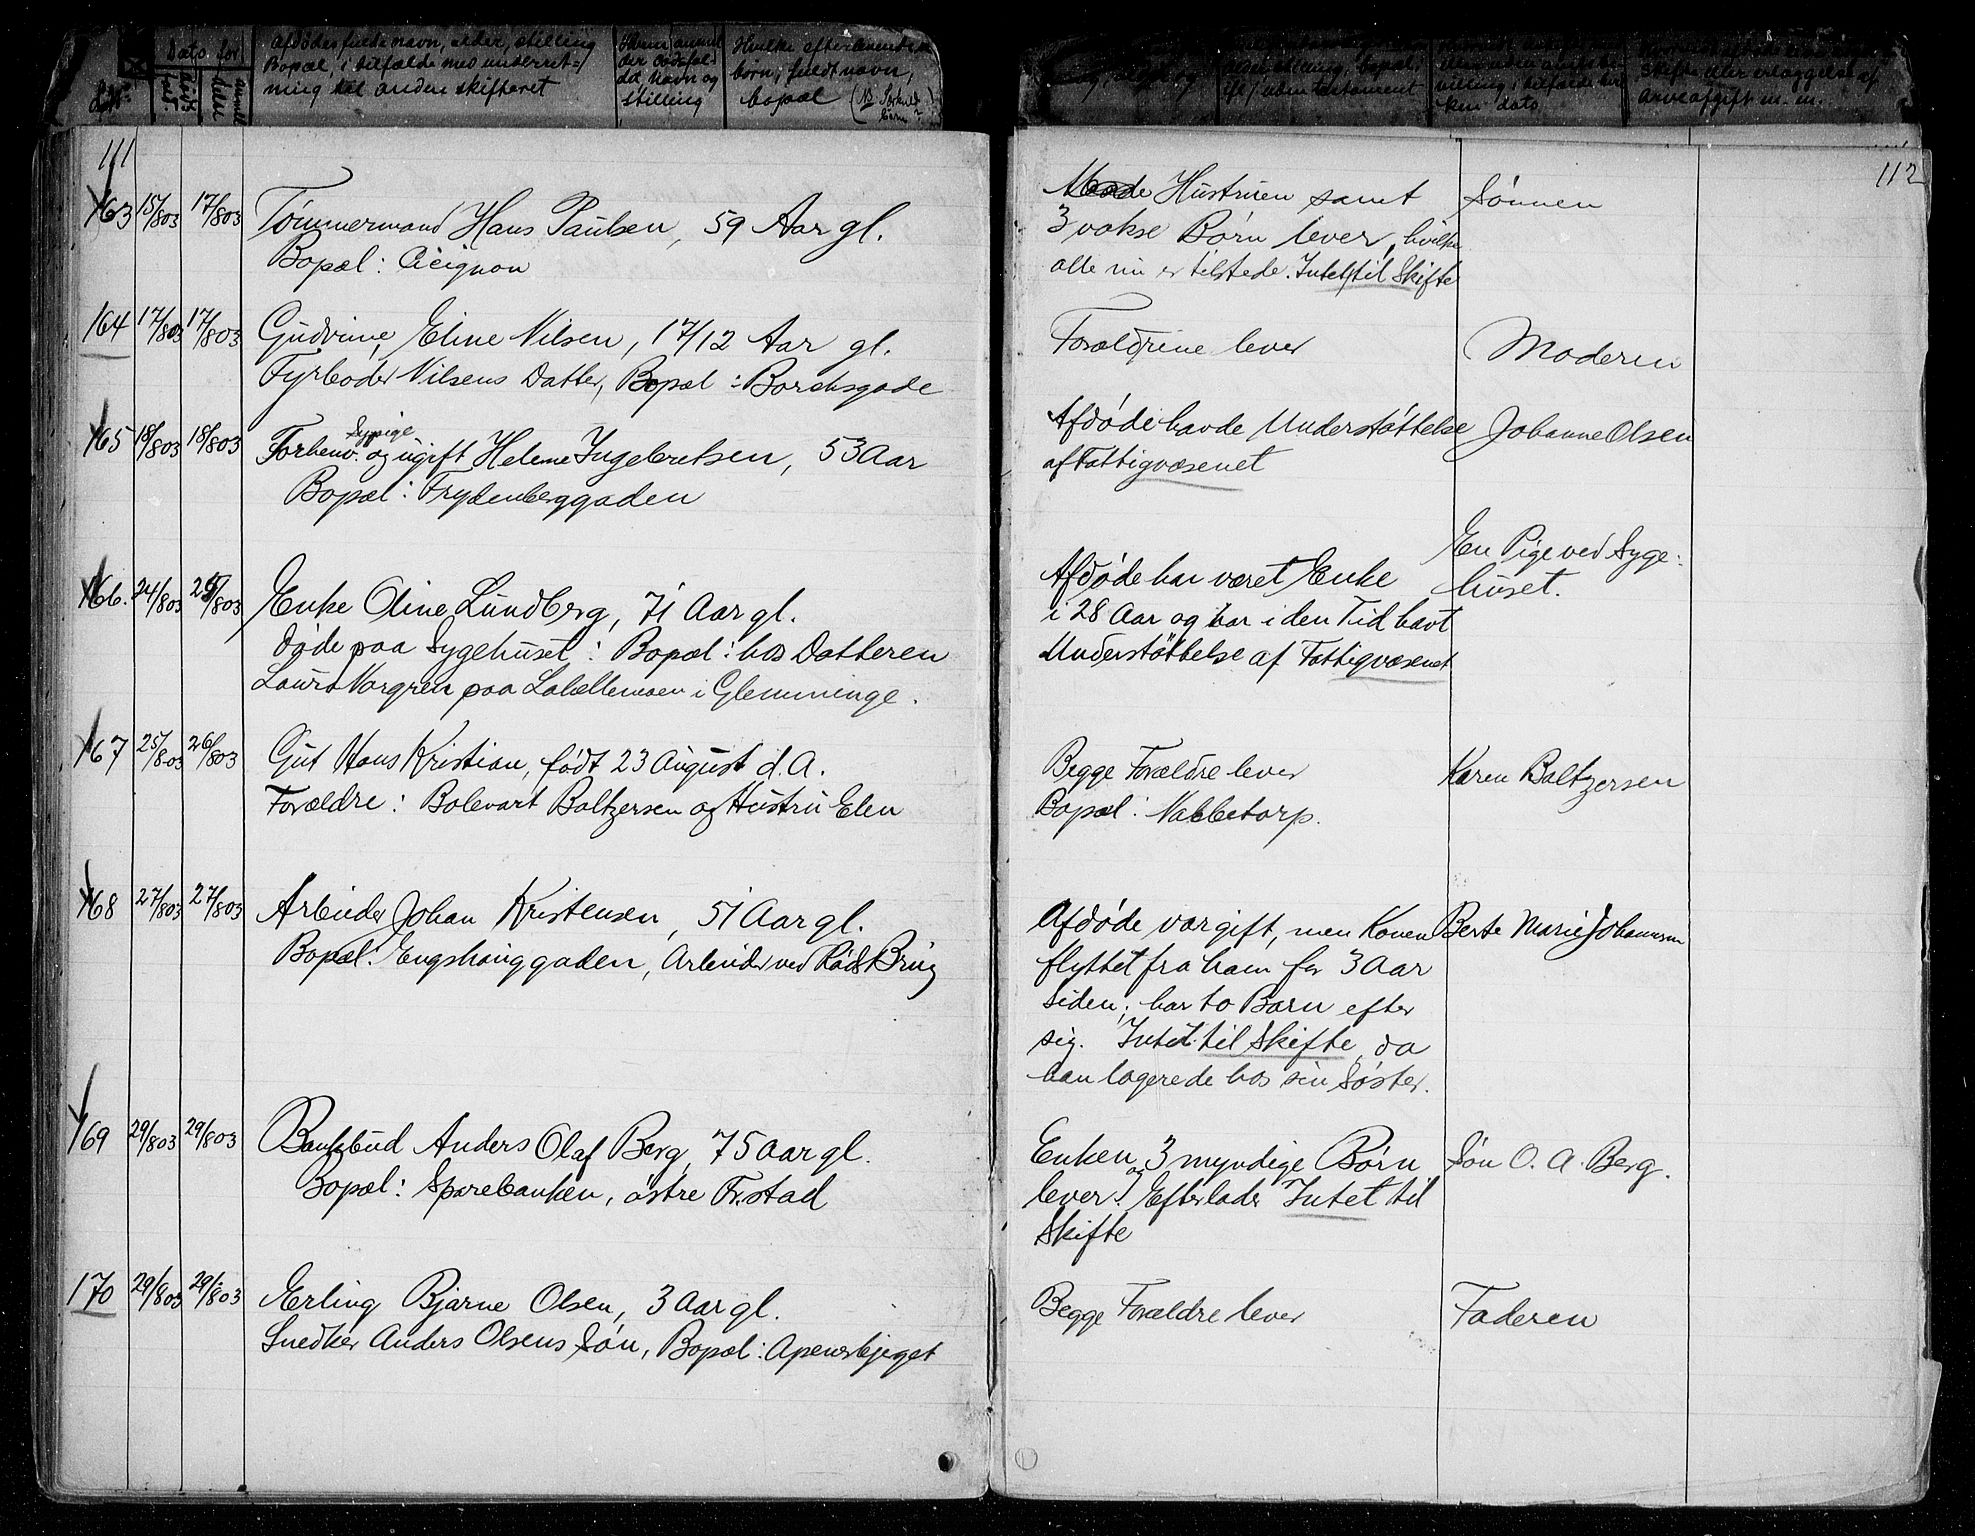 Dato for
Afdødes fulde navn, alder, stilling
Bopæl, i tilfælde med underret-
ning til anden skifteret
Hvem anmel
der dødsfal
det, navn og
stilling
Hvilke efterlevende
børn, fuldt navn,
bopæl
Skifte eller erlæggelse af
Arveafgift m. m.
111
163 15/8 03 17/8 03 Tømmermand Hans Paulsen, 59 Aar gl.
Bopæl: Cicignon
164 17/8 03 17/8 03 Gudvine Eline Nilsen, 17/12 Aar gl.
Fyrbøder Nilsens Datter, Bopæl: Borchsgade
165 18/8 03 18/8 03 Forhenv. Sypige og ugift Helene Ingebretsen, 53 Aar
Bopæl: Frydenberggaden
166. 24/8 03 25/8 03 Enke Oline Lundberg, 71 Aar gl.
døde paa Sygehuset: Bopæl: hos Datteren
Laura Norgren paa Labellemoen i Glemminge.
167 25/8 03 26/8 03 Gut Hans Kristian, født 23 August d. A.
Forældre: Bolevart Baltzersen og Hustru Elen
168 27/8 03 27/8 03 Arbeider Johan Kristensen, 51 Aar gl.
Bopæl: Engshauggaden, Arbeider ved Røds Brug
169 29/8 03 29/8 03 Bankbud Anders Olaf Berg, 75 Aar gl.
Bopæl: Sparebanken, østre Fr.stad
170 29/8 03 29/8 03 Erling Bjarne Olsen, 3 Aar gl.
Snedker Anders Olsens Søn, Bopæl: Apenesbjeget
112
Hustruen samt Sønnen
3 vokse Børn lever, hvilke
alle nu er tilstede. Intet til Skifte
Forældrene lever Moderen
Afdøde havde Understøttelse Johanne Olsen
af Fattigvæsenet
En Pige ved Syge-
huset.
Afdøde har været Enke
i 28 Aar og har i den Tid havt
Understøttelse af Fattigvæsenet
Begge Forældre lever Karen Baltzersen
Bopæl: Nabbetorp.
Afdøde var gift, men Konen Berte Marie Johannsen
flyttet fra ham for 3 Aar
siden; har to Børn efter
sig. Intet til Skifte, da
han logerede hos sin Søster.
Enken og 3 myndige Børn Søn O. A. Berg.
lever. Efterlader Intet til
Skifte
Begge Forældre lever Faderen